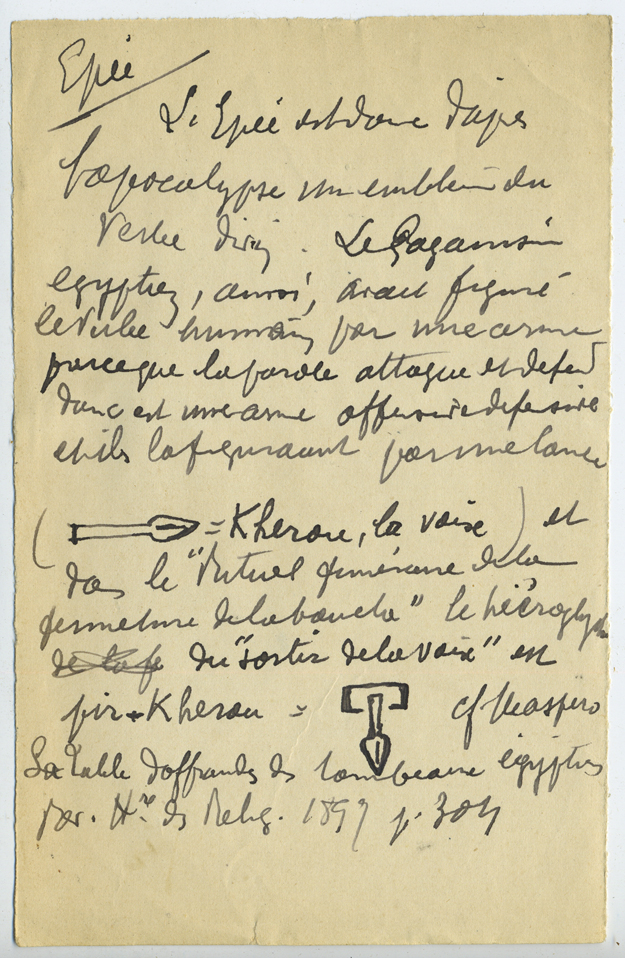 Epée
L'Epée est donc d'après
l'apocalypse un emblème du
Verbe divin. Le Paganisme
egyptien, aussi, avait figuré
le Verbe humain par une arme
parceque la parole attaque et defend
donc est une arme offensive defensive
et ils la figuraient par une lance
( = Kherou, la voix) et
dans le "Rituel funéraire de la
fermeture de la bouche" le hiéroglyphe
du "sortir de la voix" est
pir-Kherou = cf Maspero
La Table d'offrandes des tombeaux égyptiens
Rev. Hre des Relig. 1897 p. 304